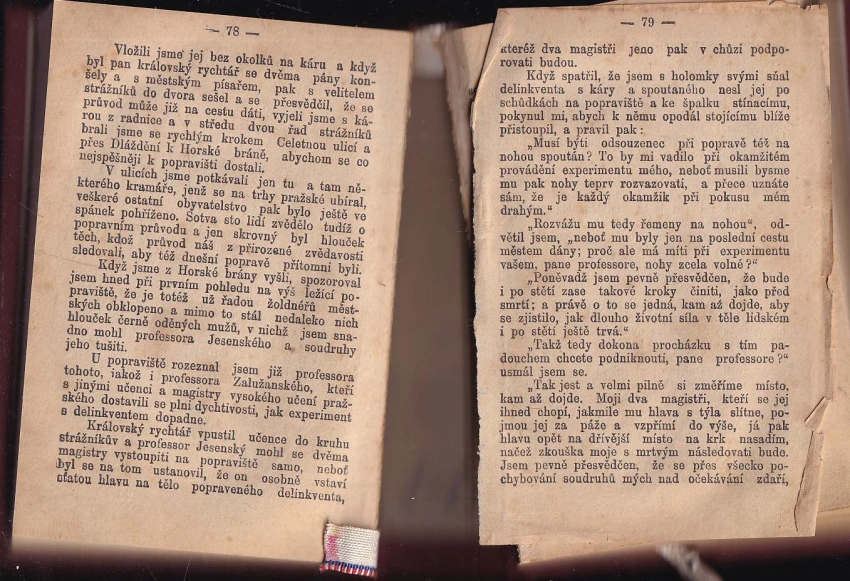 — 78 —
Vložili jsme jej bez okolků na káru a když
byl pan královský rychtář se dvěma pány kon-
šely a s městským písařem, pak s velitelem
strážníků do dvora sešel a se přesvědčil, že se
průvod může již na cestu dáti, vyjeli jsme s ká-
rou z radnice a v středu dvou řad strážníků
brali jsme se rychlým krokem Celetnou ulicí a
přes Dláždění k Horské bráně, abychom se co
nejspěšněji k popravišti dostali.
V ulicích jsme potkávali jen tu a tam ně-
kterého kramáře, jenž se na trhy pražské ubíral,
veškeré ostatní obyvatelstvo pak bylo ještě ve
spánek pohříženo. Sotva sto lidí zvědělo tudíž o
popravním průvodu a jen skrovný byl hlouček
těch, kdož průvod náš z přirozené zvědavosti
sledovali, aby též dnešní popravě přítomni byli.
Když jsme z Horské brány vyšli, spozoroval
jsem hned při prvním pohledu na výš ležící po-
praviště, že je totéž už řadou žoldnéřů měst-
ských obklopeno a mimo to stál nedaleko nich
hlouček černě oděných mužů, v nichž jsem sna-
dno mohl professora Jesenského a soudruhy
jeho tušiti.
U popraviště rozeznal jsem již professora
tohoto, jakož i professora Zalužanského, kteří
s jinými učenci a magistry vysokého učení praž-
ského dostavili se plni dychtivosti, jak experiment
s delinkventem dopadne.
Královský rychtář vpustil učence do kruhu
strážníkův a professor Jesenský mohl se dvěma
magistry vystoupiti na popraviště samo, neboť
byl se na tom ustanovil, že on osobně vstaví
sťatou hlavu na tělo popraveného delinkventa,
— 79 —
kteréž dva magistři jeno pak v chůzi podpo-
rovati budou.
Když spatřil, že jsem s holomky svými sňal
delinkventa s káry a spoutaného nesl jej po
schůdkách na popraviště a ke špalku stínacímu,
pokynul mi, abych k němu opodál stojícímu blíže
přistoupil, a pravil pak:
„Musí býti odsouzenec při popravě též na
nohou spoután? To by mi vadilo při okamžitém
provádění experimentu mého, neboť musili bysme
mu pak nohy teprv rozvazovati, a přece uznáte
sám, že je každý okamžik při pokusu mém
drahým."
„Rozvážu mu tedy řemeny na nohou", od-
větil jsem, „neboť mu byly jen na poslední cestu
městem dány; proč ale má míti při experimentu
vašem, pane professore, nohy zcela volné?"
„Poněvadž jsem pevně přesvědčen, že bude
i po stětí zase takové kroky činiti, jako před
smrtí; a právě o to se jedná, kam až dojde, aby
se zjistilo, jak dlouho životní síla v těle lidském
i po stětí ještě trvá."
„Takž tedy dokona procházku s tím pa-
douchem chcete podniknouti, pane professore?"
usmál jsem se.
„Tak jest a velmi pilně si změříme místo,
kam až dojde. Moji dva magistři, kteří se jej
ihned chopí, jakmile mu hlava s týla slítne, po-
jmou jej za páže a vzpřímí do výše, já pak
hlavu opět na dřívější místo na krk nasadím,
načež zkouška moje s mrtvým následovati bude.
Jsem pevně přesvědčen, že se přes všecko po-
chybování soudruhů mých nad očekávání zdaří,